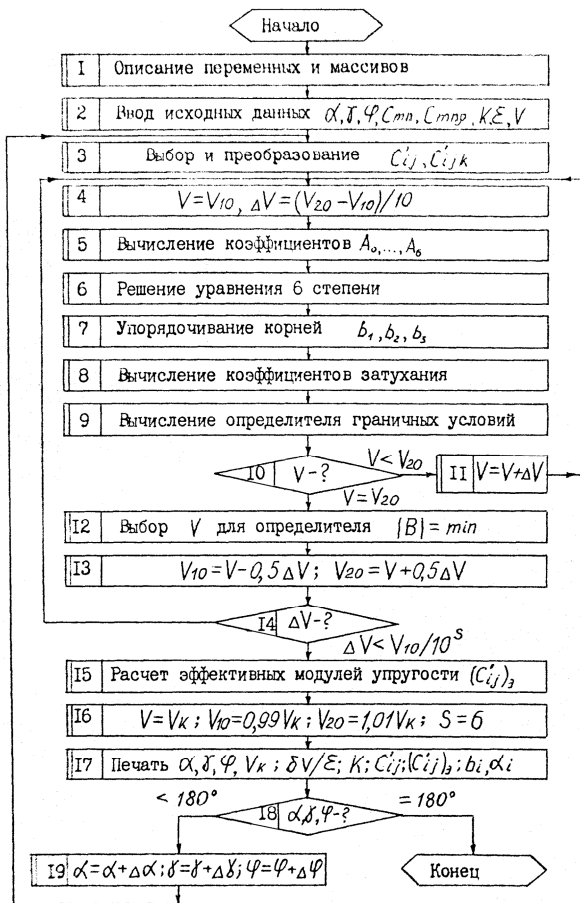 Начало
I Описание переменных и массивов
2 Ввод исходных данных α,γ,φ,Cmn,Cmnp,K,ε,V
3 Выбор и преобразование C'ij, C'ijk
4 V=V10, ΔV=(V20-V10)/10
5 Вычисление коэффициентов A0,...,A6
6 Решение уравнения 6 степени
7 Упорядочивание корней b1,b2,b3
8 Вычисление коэффициентов затухания
9 Вычисление определителя граничных условий
I0 V-? V<V20 II V=V+ΔV
V=V20
I2 Выбор V для определителя |B|=min
I3 V10=V-0,5ΔV; V20=V+0,5ΔV
I4 ΔV-?
ΔV<V10/10^S
I5 Расчет эффективных модулей упругости (C'ij)э
I6 V=VK; V10=0,99VK; V20=1,01VK; S=6
I7 Печать α,γ,φ,VK; δV/ε; K; C'ij;(C'ij)э; bi,αi
<180° I8 α,γ,φ-? =180°
I9 α=α+Δα;γ=γ+Δγ;φ=φ+Δφ Конец